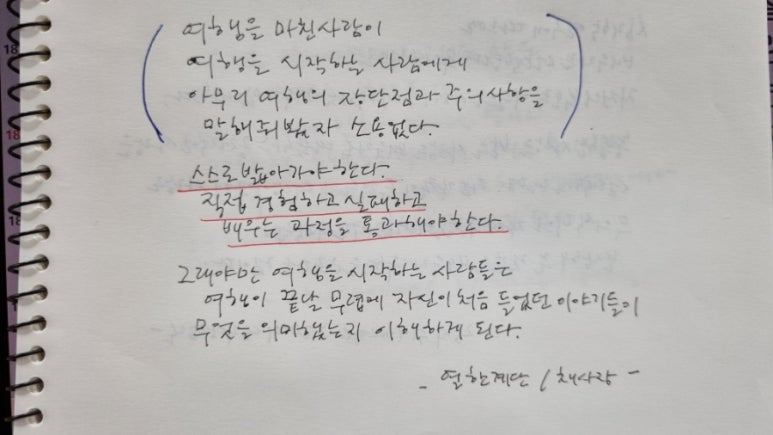 여행을 마친사람이
여행을 시작하는 사람에게
아무리 여행의 장단점과 주의사항을
말해줘봤자 소용없다.
스스로 밟아가야한다.
직접 경험하고 실패하고
배우는 과정을 통과해야한다.
그래야만 여행을 시작하는 사람들은
여행이 끝날 무렵에 자신이 처음 들었던 이야기들이
무엇을 의미했는지 이해하게 된다.
- 열한계단 / 채사장 -